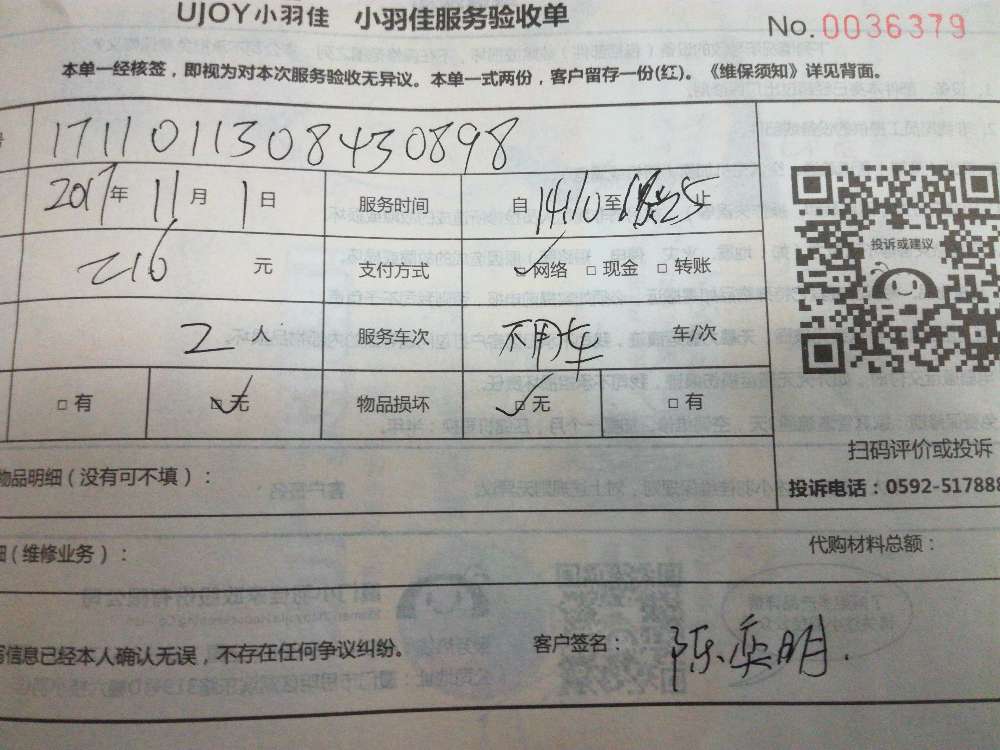 UJOY小羽佳 小羽佳服务验收单
No.0036379
本单一经核签，即视为对本次服务验收无异议。本单一式两份，客户留存一份(红)。《维保须知》详见背面。
17110113084430898
2017年 11月 1日 服务时间 自 14:10至 止
216 元 支付方式 网络 □ 现金 □ 转账
2 人 服务车次 不用车 车/次
□ 有 □ 无 物品损坏 □ 无 □ 有
投诉或建议
扫码评价或投诉
物品明细（没有可不填）：
投诉电话：0592-517888
（维修业务）：
代购材料总额：
信息已经本人确认无误，不存在任何争议纠纷。
客户签名： 陈奕明.